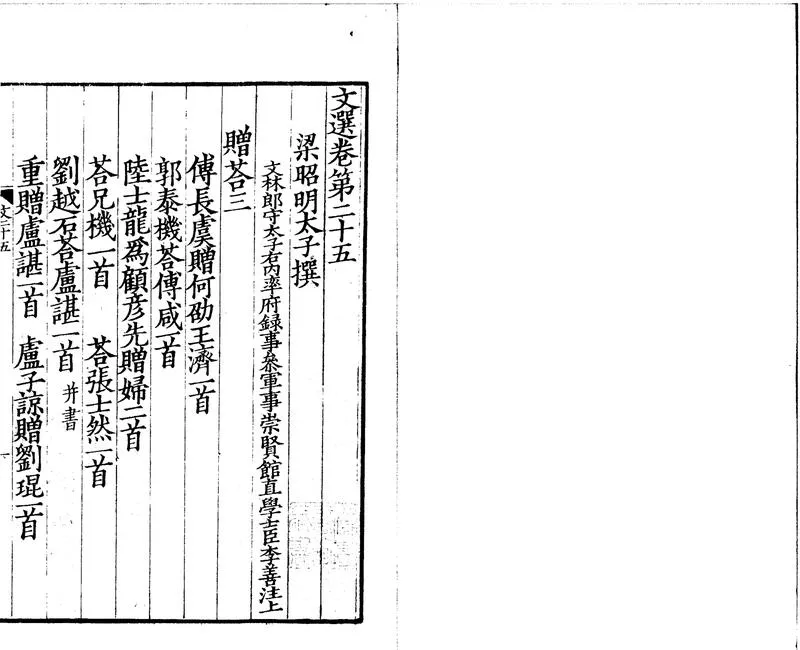 文選卷第二十五
梁昭明太子撰
文林郎守太子右内率府録事叅軍事崇賢館直學士臣李善注上
贈荅三
傅長虞贈何劭王濟一首
郭泰機荅傅咸一首
陸士龍爲顧彦先贈婦二首
荅兄機一首 荅張士然一首
劉越石荅盧諶一首 并書
重贈盧諶一首 盧子諒贈劉琨一首
文二十五